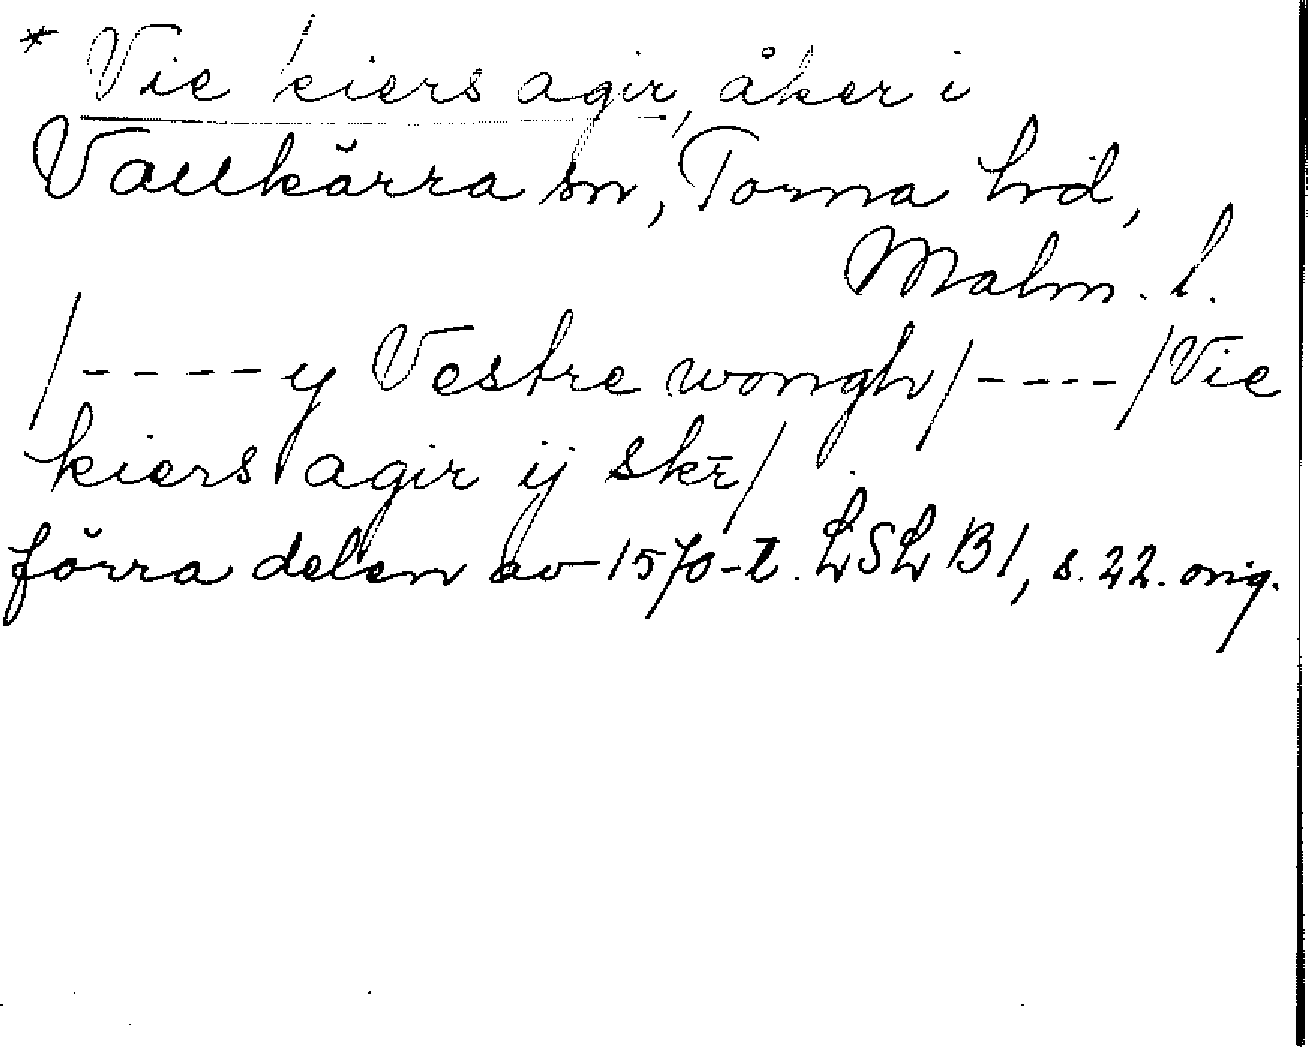 * Vie kiers agir, åker i
Vallkärra sn, Torna hd,
Malm. l.
/----y Vestre wongh/----/Vie
kiers agir ij skr̄/
förra delen av 1570-t. LSL B1, s. 22. orig.